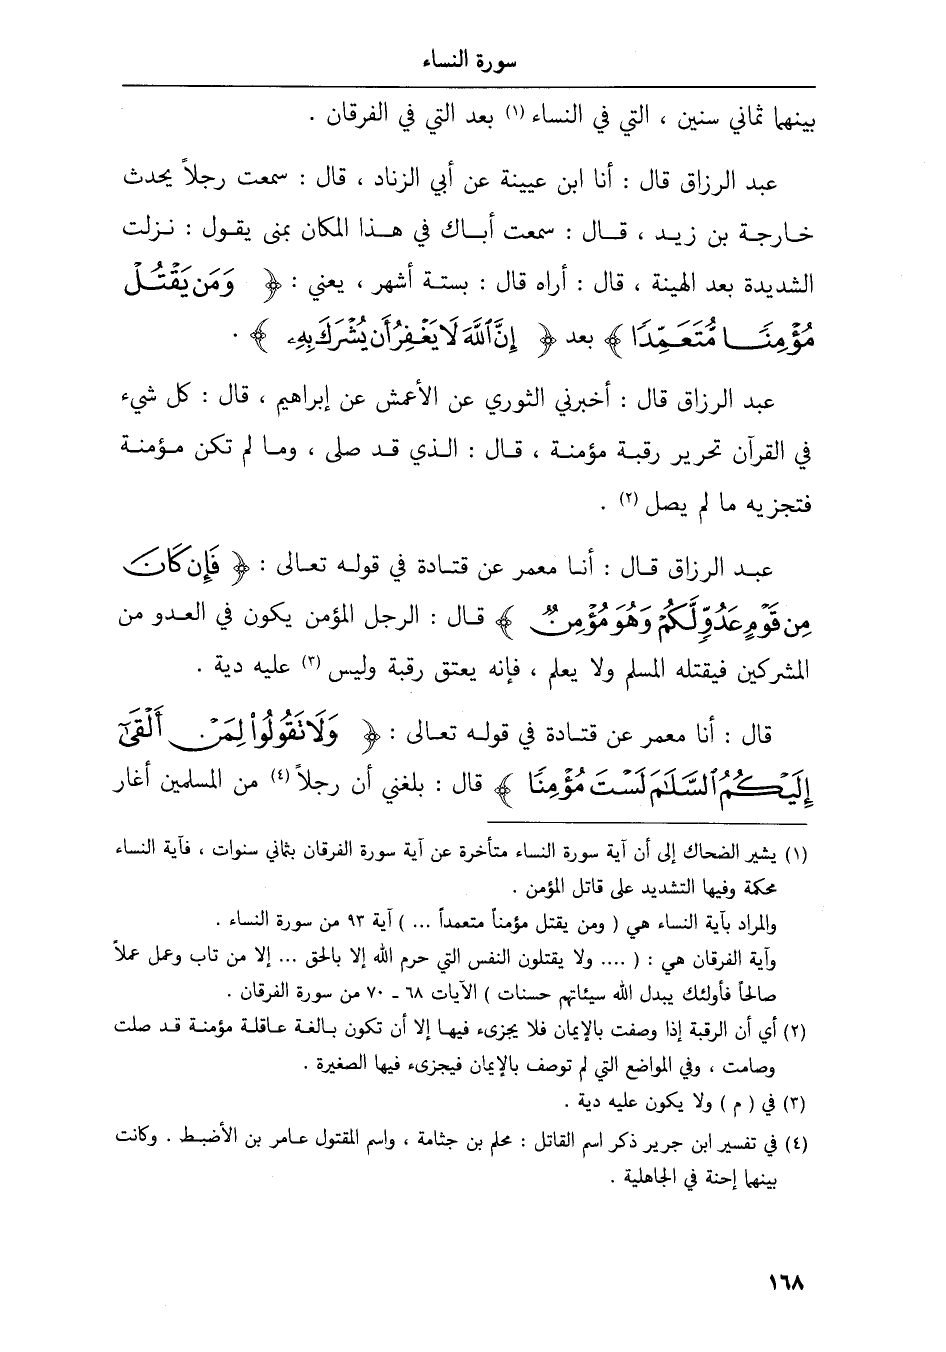 سورة النساء
بينهما ثماني سنين ، التي في النساء (١) بعد التي في الفرقان .
عبد الرزاق قال : أنا ابن عيينة عن أبي الزناد ، قال : سمعت رجلاً يحدث
خارجة بن زيد ، قال : سمعت أباك في هذا المكان بمنى يقول : نزلت
الشديدة بعد الهينة ، قال : أراه قال : بستة أشهر ، يعني : ﴿ وَمَن يَقْتُلْ
مُؤْمِنًا مُّتَعَمِّدًا ﴾ بعد ﴿ إِنَّ ٱللَّهَ لَا يَغْفِرُ أَن يُشْرَكَ بِهِۦ ﴾ .
عبد الرزاق قال : أخبرني الثوري عن الأعمش عن إبراهيم ، قال : كل شيء
في القرآن تحرير رقبة مؤمنة ، قال : الذي قد صلى ، وما لم تكن مؤمنة
فتجزيه ما لم يصل (٢) .
عبد الرزاق قال : أنا معمر عن قتادة في قوله تعالى : ﴿ فَإِن كَانَ
مِن قَوْمٍ عَدُوٍّ لَّكُمْ وَهُوَ مُؤْمِنٌ ﴾ قال : الرجل المؤمن يكون في العدو من
المشركين فيقتله المسلم ولا يعلم ، فإنه يعتق رقبة وليس (٣) عليه دية .
قال : أنا معمر عن قتادة في قوله تعالى : ﴿ وَلَا تَقُولُوا۟ لِمَنْ أَلْقَىٰٓ
إِلَيْكُمُ ٱلسَّلَٰمَ لَسْتَ مُؤْمِنًا ﴾ قال : بلغني أن رجلاً (٤) من المسلمين أغار
(١) يشير الضحاك إلى أن آية سورة النساء متأخرة عن آية سورة الفرقان بثماني سنوات ، فآية النساء
محكمة وفيها التشديد على قاتل المؤمن .
والمراد بآية النساء هي ( ومن يقتل مؤمناً متعمداً ... ) آية ٩٣ من سورة النساء .
وآية الفرقان هي : ( .... ولا يقتلون النفس التي حرم الله إلا بالحق ... إلا من تاب وعمل عملاً
صالحاً فأولئك يبدل الله سيئاتهم حسنات ) الآيات ٦٨ - ٧٠ من سورة الفرقان .
(٢) أي أن الرقبة إذا وصفت بالإيمان فلا يجزىء فيها إلا أن تكون بالغة عاقلة مؤمنة قد صلت
وصامت ، وفي المواضع التي لم توصف بالإيمان فيجزىء فيها الصغيرة .
(٣) في ( م ) ولا يكون عليه دية .
(٤) في تفسير ابن جرير ذكر اسم القاتل : محلم بن جثامة ، واسم المقتول عامر بن الأضبط . وكانت
بينهما إحنة في الجاهلية .
١٦٨